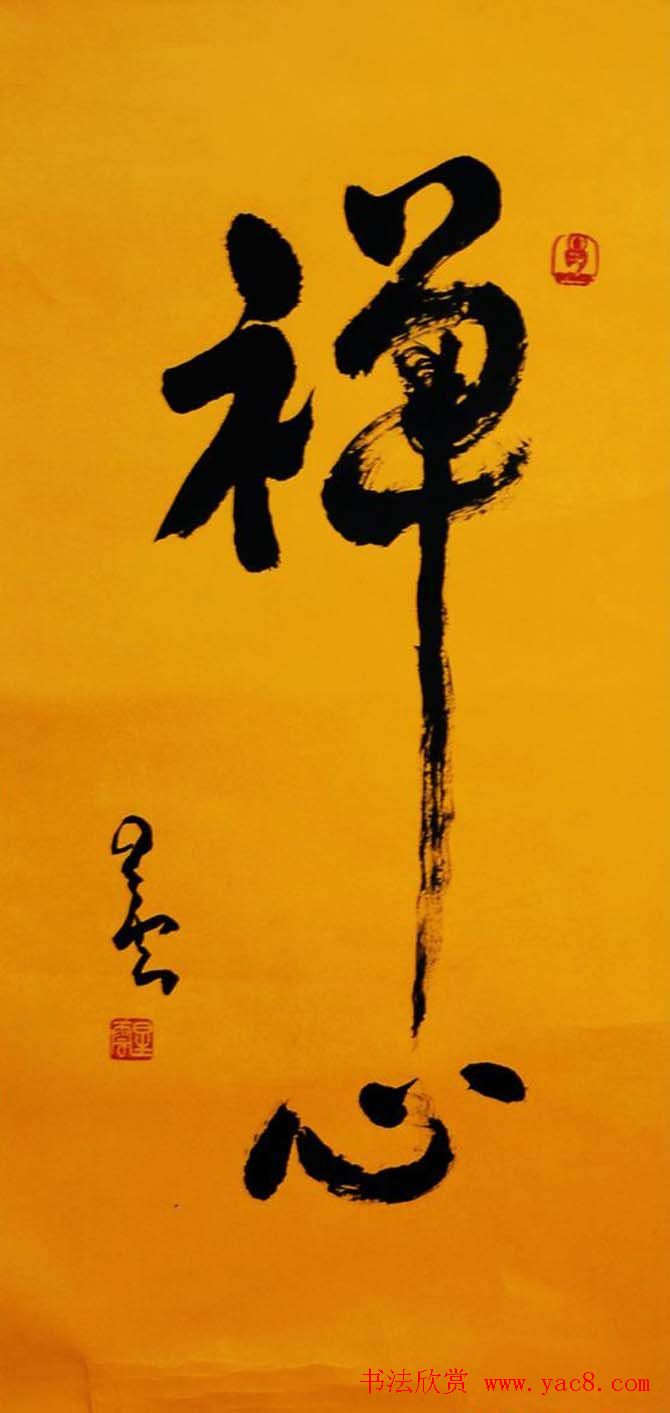 禅心
星雲
星雲
书法欣赏 www.yac8.com